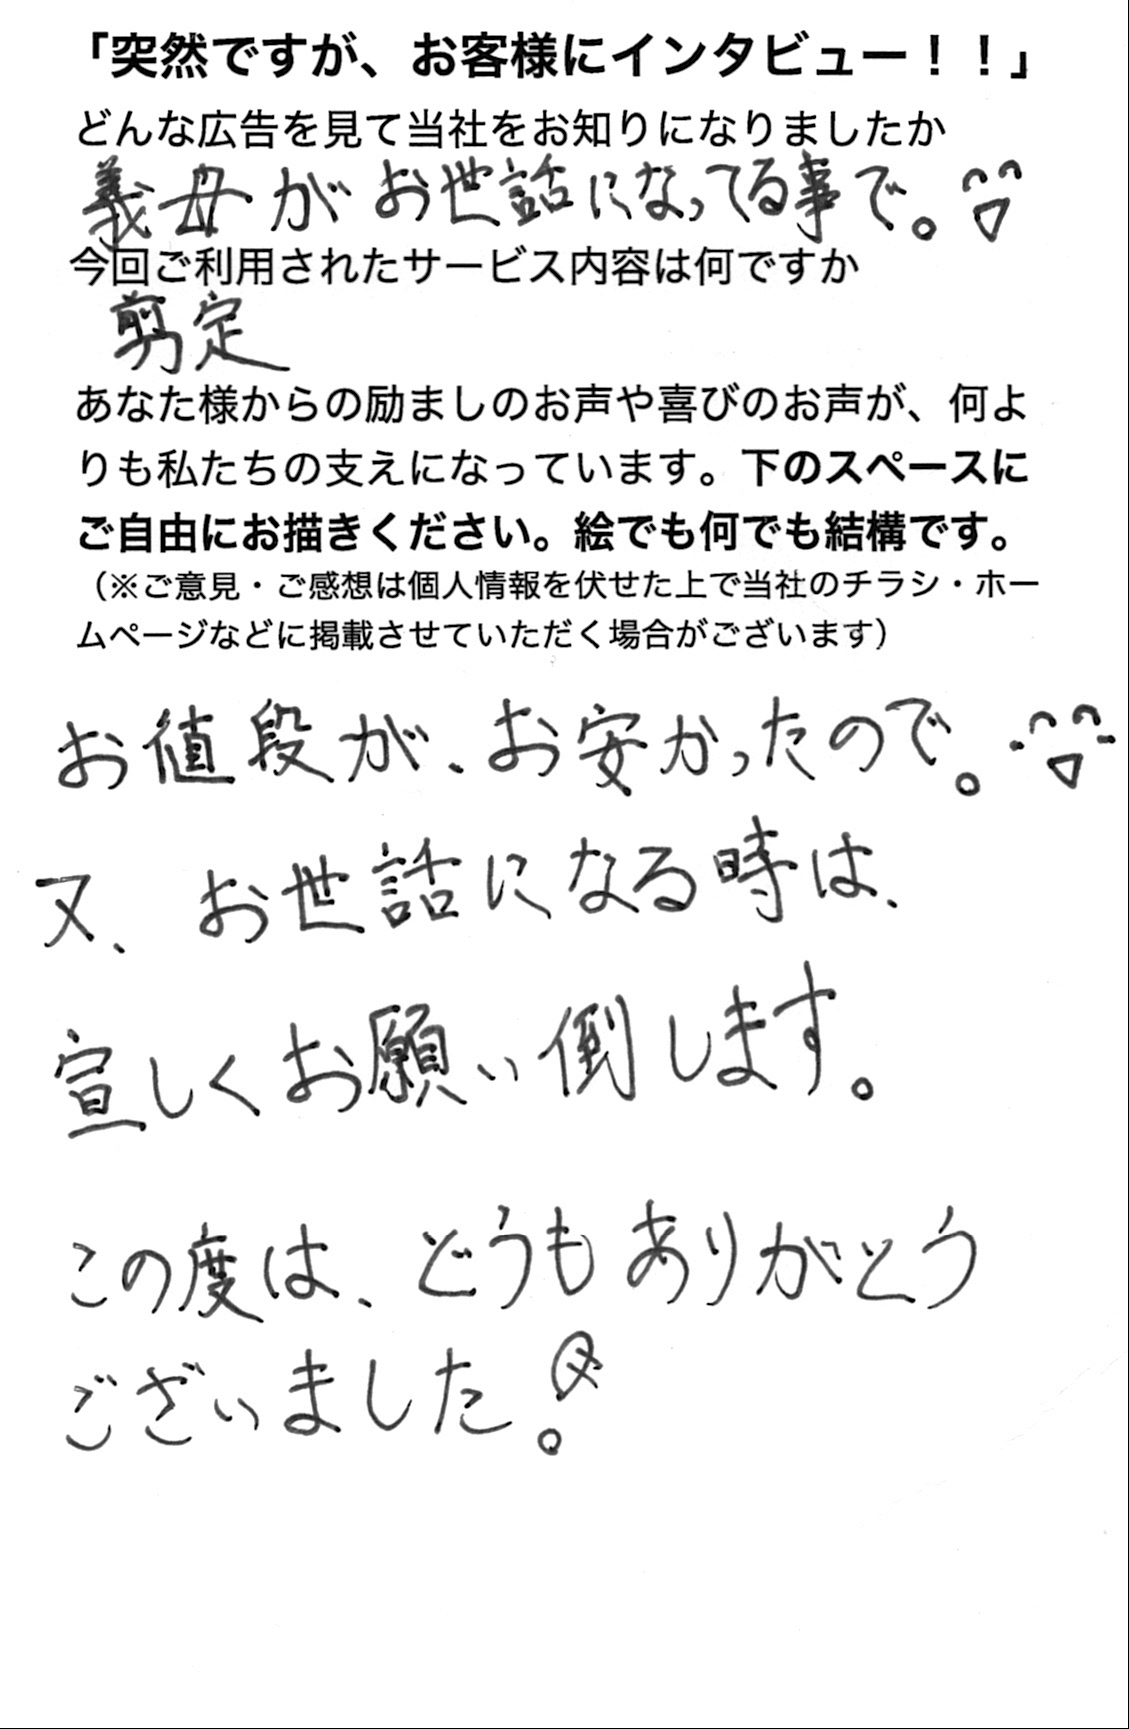 「突然ですが、お客様にインタビュー！！」
どんな広告を見て当社をお知りになりましたか
義母がお世話になってる事で。
今回ご利用されたサービス内容は何ですか
剪定
あなた様からの励ましのお声や喜びのお声が、何よ
りも私たちの支えになっています。下のスペースに
ご自由にお描きください。絵でも何でも結構です。
（※ご意見・ご感想は個人情報を伏せた上で当社のチラシ・ホー
ムページなどに掲載させていただく場合がございます）
お値段が、お安かったので。
又、お世話になる時は、
宣しくお願い倒します。
この度は、どうもありがとう
ございました。